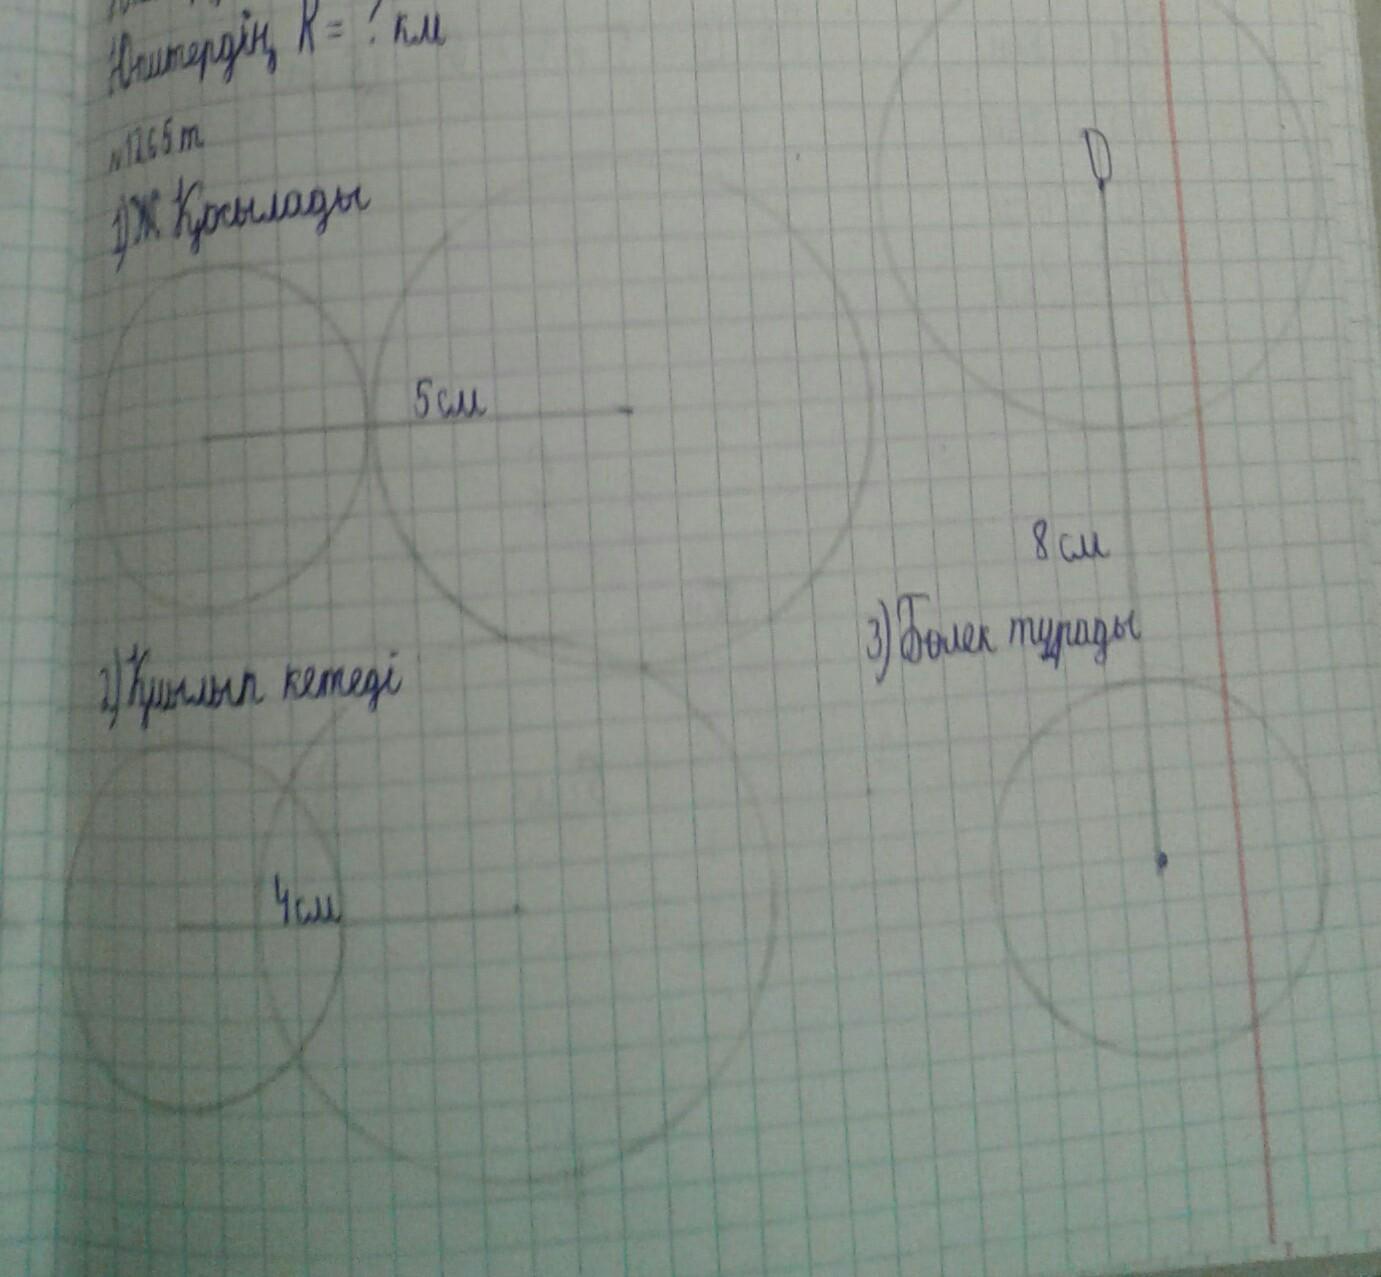 Юпитердің R = ? км
№1265т
1) Қосылады
5см
2) Қиылып кетеді
4см
8см
3) Бөлек тұрады